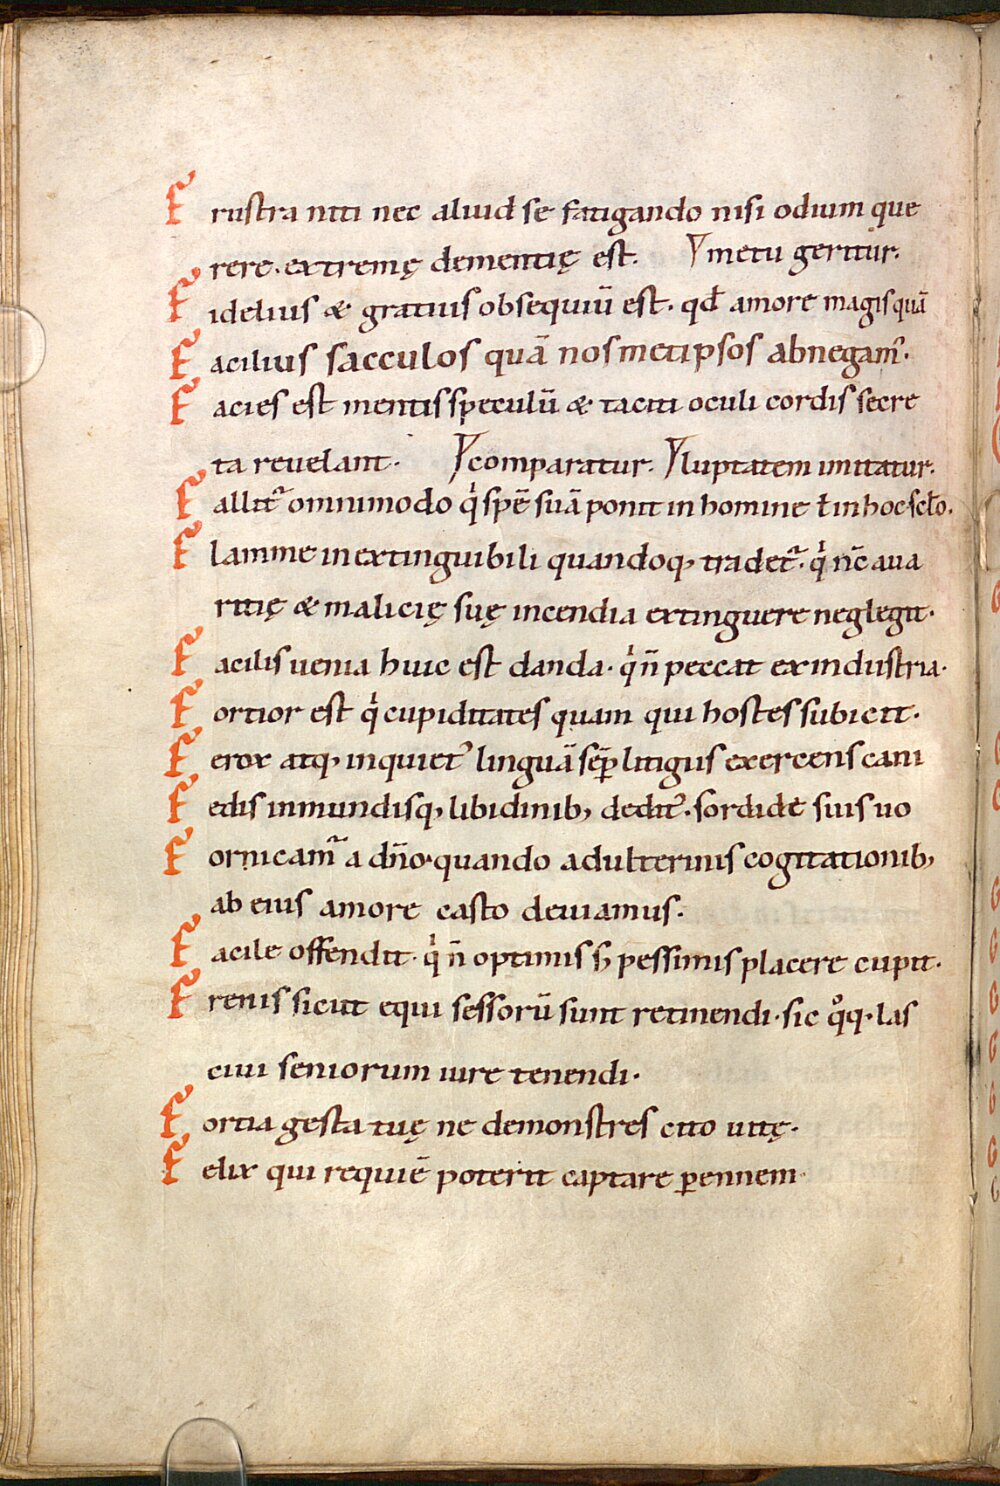 Frustra niti nec aliud se fatigando nisi odium que
rere· extremę dementię est. metu geritur.
Fidelius & gratius obsequiū est· qđ amore magis quā
Facilius sacculos quā nosmetipsos abnegam᷒·
Facies est mentis speculū & taciti oculi cordis secre
ta reuelant· comparatur. luptatem imitatur.
Fallit᷒ omnimodo q̇ spē suā ponit in homine ł in hoc scło.
Flamme inextinguibili quandoq, tradet᷒· q̇ nc̄ aua
ritię & malicię suę incendia extinguere neglegit·
Facilis uenia huic est danda· q̇ n̄ peccat ex industria·
Fortior est q̇ cupiditates quam qui hostes subicit·
Ferox atq, inquiet᷒ linguā sēp litigiis exercens cani
Fedis inmundisq, libidinib, dedit᷒· sordide suis uo
Fornicam᷒ a dn̄o· quando adulterinis cogitationib,
ab eius amore casto deuiamus·
Facile offendit· q̇ n̄ optimis s̄ pessimis placere cupit·
Frenis sicut equi sessorū sunt retinendi· sic q̊q· las
ciui seniorum iure tenendi·
Fortia gesta tuę ne demonstres cito uitę·
Felix qui requiē poterit captare ꝑennem·